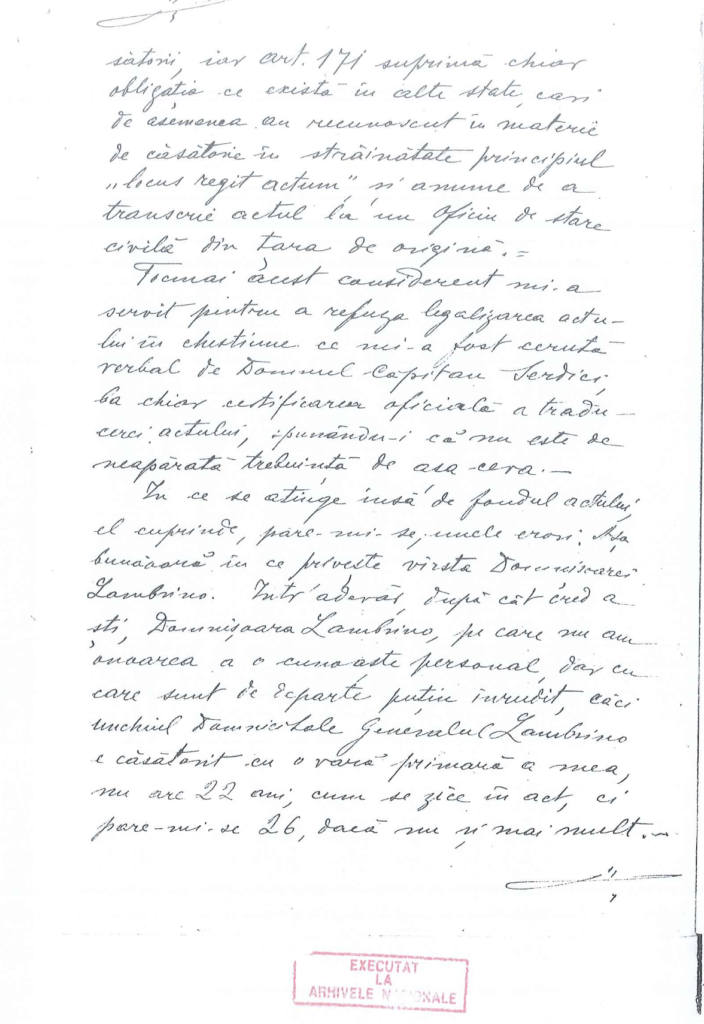 sătorii, iar art. 171 suprimă chiar
obligația ce există în alte state, cari
de asemenea au recunoscut în materie
de căsătorie în străinătate principiul
„locus regit actum", și anume de a
transcrie actul la un oficiu de stare
civilă din țara de origină.=
Tocmai acest considerent mi-a
servit pentru a refuza legalizarea actu-
lui în chestiune ce mi-a fost cerută
verbal de Domnul Capitan Serdici,
ba chiar certificarea oficială a tradu-
cerei actului, spunându-i că nu este de
neapărată trebuință de așa ceva.—
In ce se atinge însă de fondul actului,
el cuprinde, pare-mi-se, unele erori. Așa
bunăoară în ce privește vîrsta Domnișoarei
Lambrino. Intr'adevăr, după cât cred a
ști, Domnișoara Lambrino, pe care nu am
onoarea a o cunoaște personal, dar cu
care sunt de departe puțin înrudit, căci
unchiul Domniei sale Generalul Lambrino
e căsătorit cu o vară primară a mea,
nu are 22 ani, cum se zice în act, ci
pare-mi-se 26, dacă nu și mai mult.—
EXECUTAT
LA
ARHIVELE NAȚIONALE